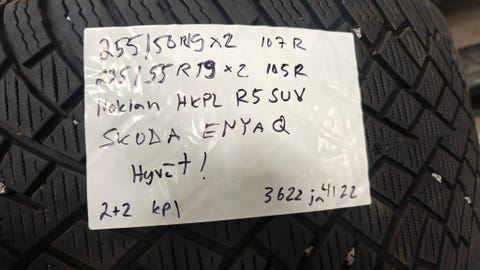 255/50R19 x2 107R
235/55R19 x2 105R
Nokian HKPL R5 SUV
SKODA ENYAQ
Hyvät!
2+2 kpl 3622 ja 4122